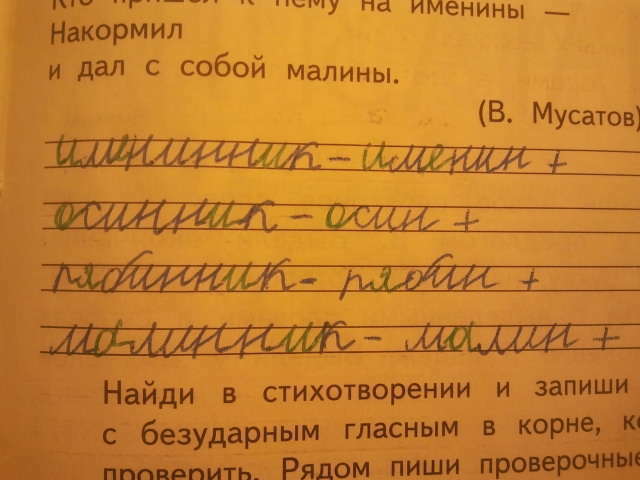 Кто пришёл к нему на именины —
Накормил
и дал с собой малины.
(В. Мусатов)
именинник – именин +
осинник – осин +
рябинник – рябин +
малинник – малин +
Найди в стихотворении и запиши
с безударным гласным в корне, ко
проверить. Рядом пиши проверочные